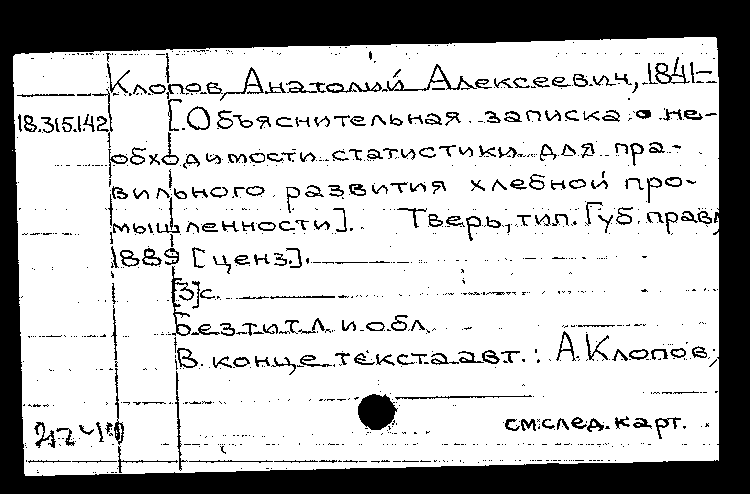 Клопов, Анатолий Алексеевич, 1841-
18.315.142 [Объяснительная записка о не-
обходимости статистики для пра-
вильного развития хлебной про-
мышленности]. Тверь, тип. Губ. правл
1889 [ценз.].
[3]с.
Без тит. л. и обл.
В конце текста авт.: А. Клопов;
см. след. карт.